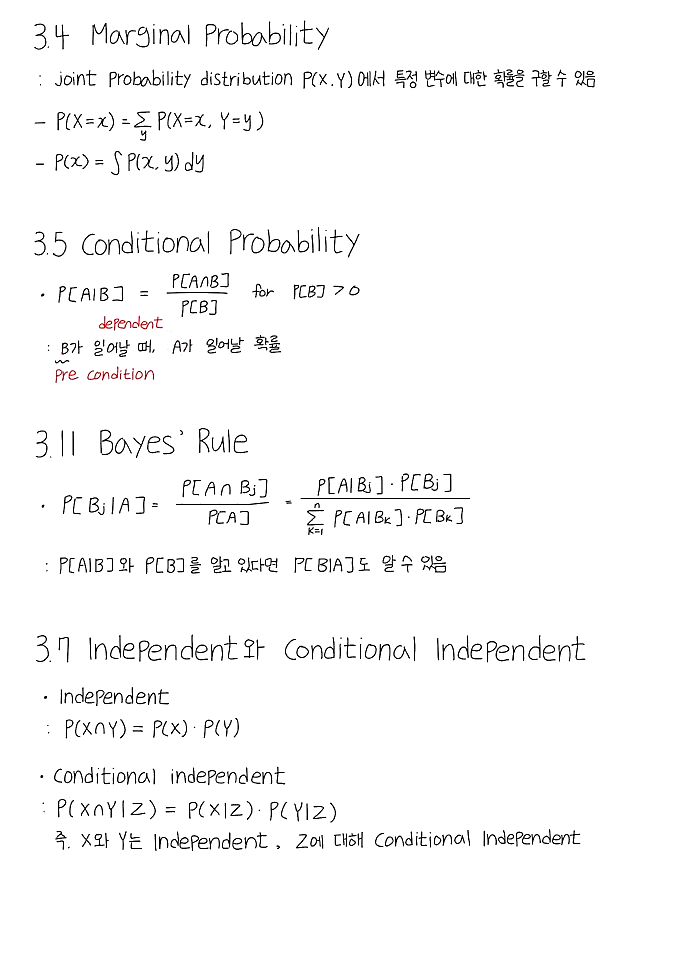 3.4 Marginal Probability
: joint Probability distribution P(X,Y)에서 특정 변수에 대한 확률을 구할 수 있음
- P(X=x) = ∑_y P(X=x, Y=y)
- P(x) = ∫ P(x, y) dy
3.5 Conditional Probability
· P[A|B] = P[A∩B] / P[B] for P[B] > 0
dependent
: B가 일어날 때, A가 일어날 확률
Pre condition
3.11 Bayes' Rule
· P[Bj|A] = P[A∩Bj] / P[A] = P[A|Bj]·P[Bj] / ∑_{k=1}^{n} P[A|Bk]·P[Bk]
: P[A|B]와 P[B]를 알고 있다면 P[B|A]도 알 수 있음
3.7 Independent와 Conditional Independent
· Independent
: P(X∩Y) = P(X)·P(Y)
· Conditional independent
: P(X∩Y|Z) = P(X|Z)·P(Y|Z)
즉, X와 Y는 Independent, Z에 대해 Conditional Independent